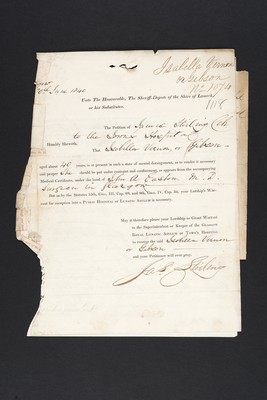 Isabella Vernon
or Gibson
11th June 1840
Unto The Honourable, The Sheriff-Depute of the Shire of Lanark,
or his Substitutes.
The Petition of James Stirling
to the Town Hospital
Humbly Sheweth,
That Isabella Vernon or Gibson
aged about 40 years, is at present in such a state of mental derangement, as to render it necessary
and proper she should be put under restraint and confinement, as appears from the accompanying
Medical Certificate, under the hand of John A. Easton M.D.
Surgeon in Glasgow
But as by the Statutes
your Lordship's Warrant
for reception into a Public Hospital or Lunatic Asylum is necessary.
May it therefore please your Lordship to Grant Warrant
to the Superintendent or Keeper of the Glasgow
Royal Lunatic Asylum or Town's Hospital
to receive the said Isabella Vernon
or Gibson
and your Petitioner will ever pray.
Jas Stirling